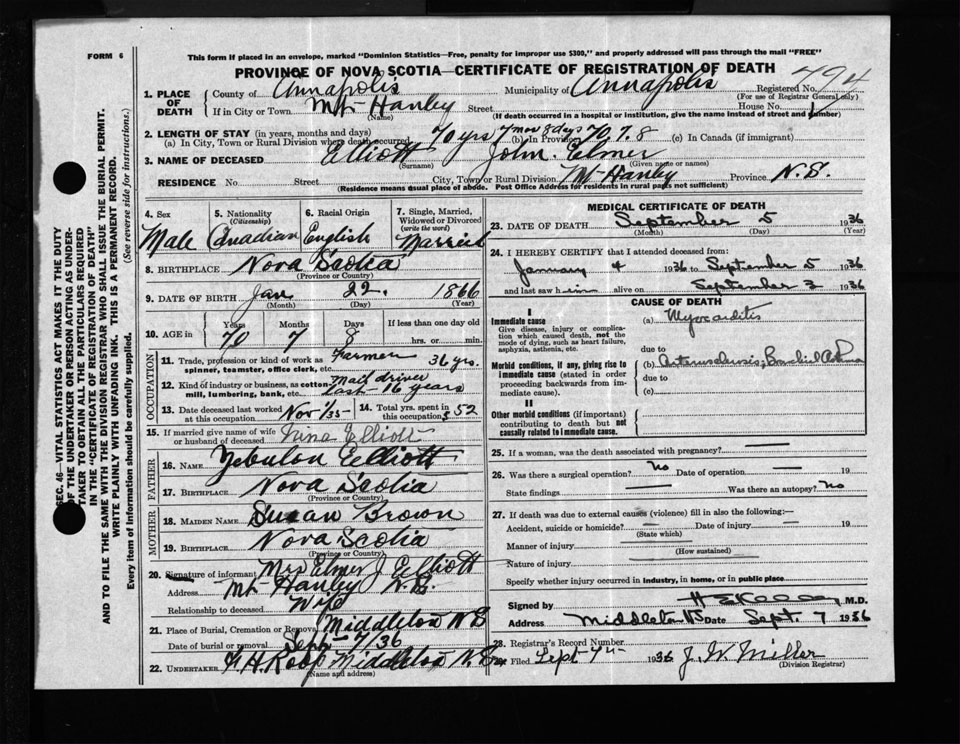 FORM 6
This form if placed in an envelope, marked "Dominion Statistics—Free, penalty for improper use $300," and properly addressed will pass through the mail "FREE"
PROVINCE OF NOVA SCOTIA—CERTIFICATE OF REGISTRATION OF DEATH
794
1. PLACE OF DEATH
County of Annapolis Municipality of Annapolis Registered No.
(For use of Registrar General only)
If in City or Town Mt Hanley Street House No.
(Name) (If death occurred in a hospital or institution, give the name instead of street and number)
2. LENGTH OF STAY (in years, months and days)
(a) In City, Town or Rural Division where death occurred 70 yrs 7 mos 8 days (b) In Province 70.7.8 (c) In Canada (if immigrant)
3. NAME OF DECEASED Elliott John Elmer
(Surname) (Given name or names)
RESIDENCE No. Street City, Town or Rural Division Mt Hanley Province N.S.
(Residence means usual place of abode. Post Office Address for residents in rural parts not sufficient)
4. Sex Male
5. Nationality (Citizenship) Canadian
6. Racial Origin English
7. Single, Married, Widowed or Divorced (write the word) Married
8. BIRTHPLACE Nova Scotia
(Province or Country)
9. DATE OF BIRTH Jan 22. 1866
(Month) (Day) (Year)
10. AGE in Years 70 Months 7 Days 8 If less than one day old hrs. or min.
OCCUPATION
11. Trade, profession or kind of work as spinner, teamster, office clerk, etc. Farmer 36 yrs.
12. Kind of industry or business, as cotton mill, lumbering, bank, etc. Mail driver last 16 years
13. Date deceased last worked at this occupation Nov 1/35
14. Total yrs. spent in this occupation 52
15. If married give name of wife or husband of deceased Nina Elliott
FATHER
16. NAME Zebulon Elliott
17. BIRTHPLACE Nova Scotia
(Province or Country)
MOTHER
18. MAIDEN NAME Susan Brown
19. BIRTHPLACE Nova Scotia
(Province or Country)
20. Signature of informant Mrs Elmer J Elliott
Address Mt Hanley N.S.
Relationship to deceased Wife
21. Place of Burial, Cremation or Removal Middleton N.S
Date of burial or removal Sept 7/36
22. UNDERTAKER Middleton N.S.
(Name and address)
MEDICAL CERTIFICATE OF DEATH
23. DATE OF DEATH September 5 1936
(Month) (Day) (Year)
24. I HEREBY CERTIFY that I attended deceased from:
January 4 1936 to September 5 1936
and last saw him alive on September 3 1936
CAUSE OF DEATH
I
Immediate cause
Give disease, injury or complication which caused death, not the mode of dying, such as heart failure, asphyxia, asthenia, etc.
(a) Myocarditis
due to
Morbid conditions, if any, giving rise to immediate cause (stated in order proceeding backwards from immediate cause).
(b) Arteriosclerosis, Bronchial Asthma
due to
(c)
II
Other morbid conditions (if important) contributing to death but not causally related to immediate cause.
25. If a woman, was the death associated with pregnancy?
26. Was there a surgical operation? No Date of operation — 19
State findings — Was there an autopsy? No
27. If death was due to external causes (violence) fill in also the following:—
Accident, suicide or homicide? — Date of injury — 19
(State which)
Manner of injury
(How sustained)
Nature of injury
Specify whether injury occurred in industry, in home, or in public place
Signed by M.D.
Address Middleton NS Date Sept. 7 1936
28. Registrar's Record Number
29. Filed Sept 7th 1936 J. W. Miller
(Division Registrar)
SEC. 46—VITAL STATISTICS ACT MAKES IT THE DUTY
OF THE UNDERTAKER OR PERSON ACTING AS UNDERTAKER TO OBTAIN ALL THE PARTICULARS REQUIRED
IN THE "CERTIFICATE OF REGISTRATION OF DEATH"
AND TO FILE THE SAME WITH THE DIVISION REGISTRAR WHO SHALL ISSUE THE BURIAL PERMIT.
WRITE PLAINLY WITH UNFADING INK. THIS IS A PERMANENT RECORD.
Every item of information should be carefully supplied. (See reverse side for instructions.)